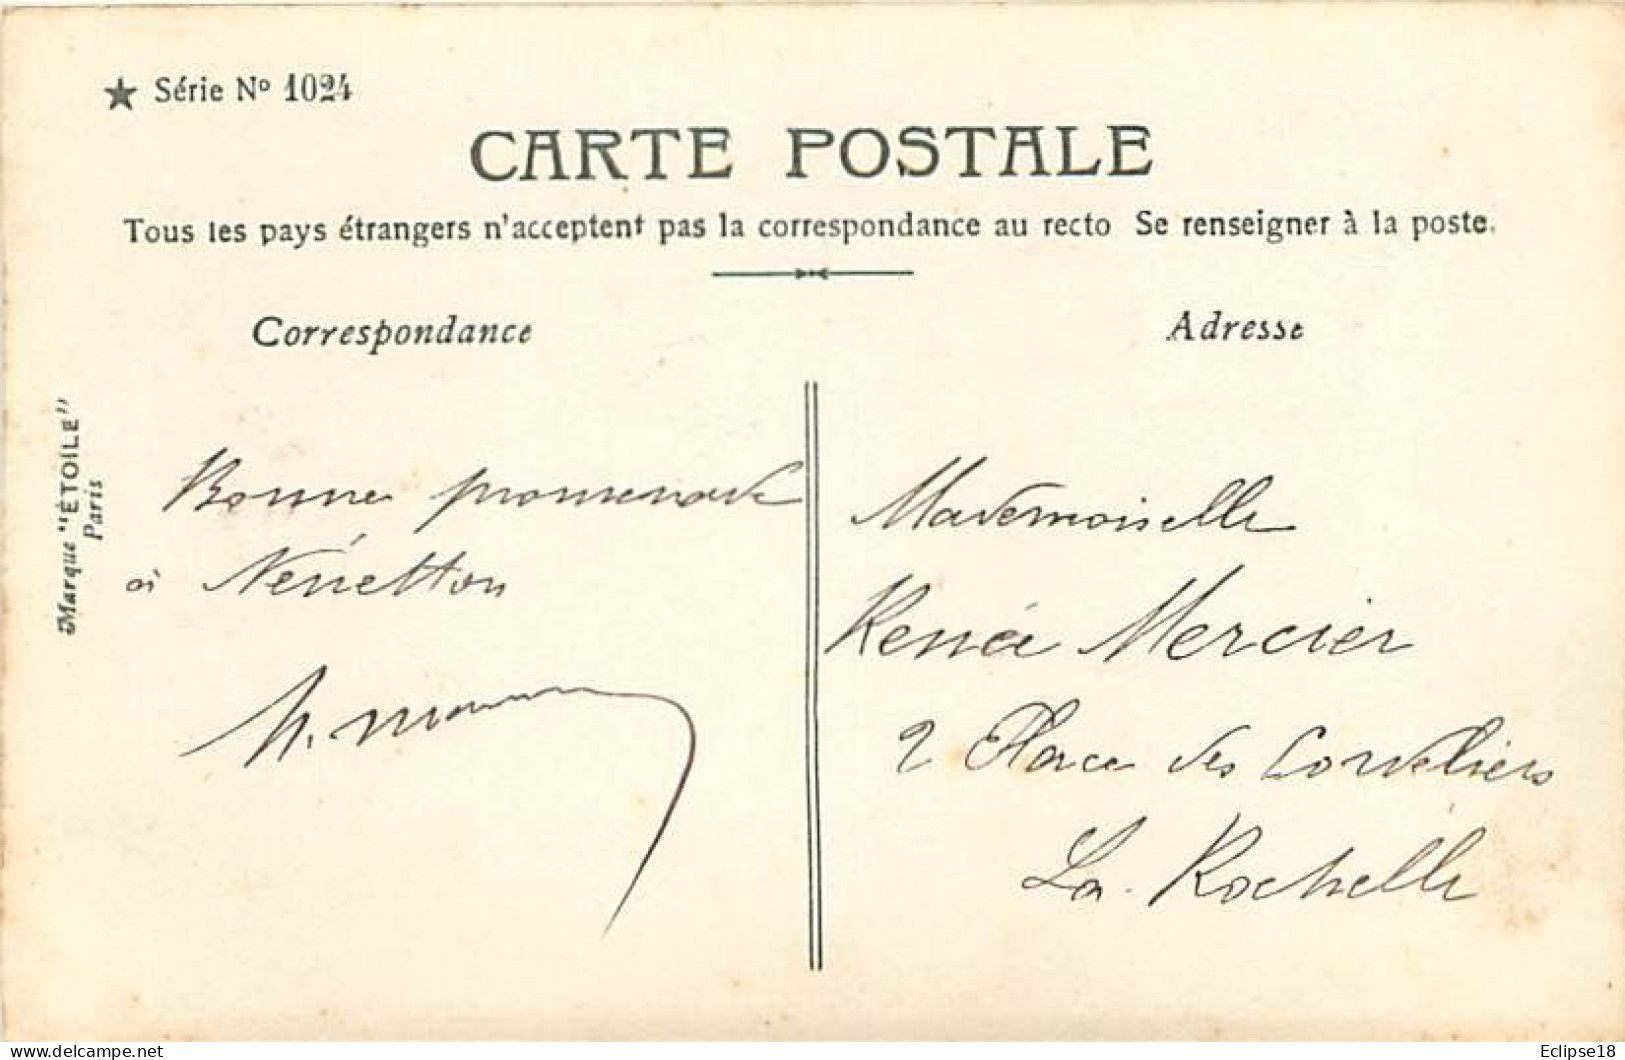 ★ Série Nº 1024
CARTE POSTALE
Tous les pays étrangers n'acceptent pas la correspondance au recto Se renseigner à la poste.
Correspondance
Adresse
Marque "ÉTOILE"
Paris
Bonne promenade
à Nénetton
Mademoiselle
Renée Mercier
2 Place des Cordeliers
La Rochelle
delcampe.net
Eclipse18